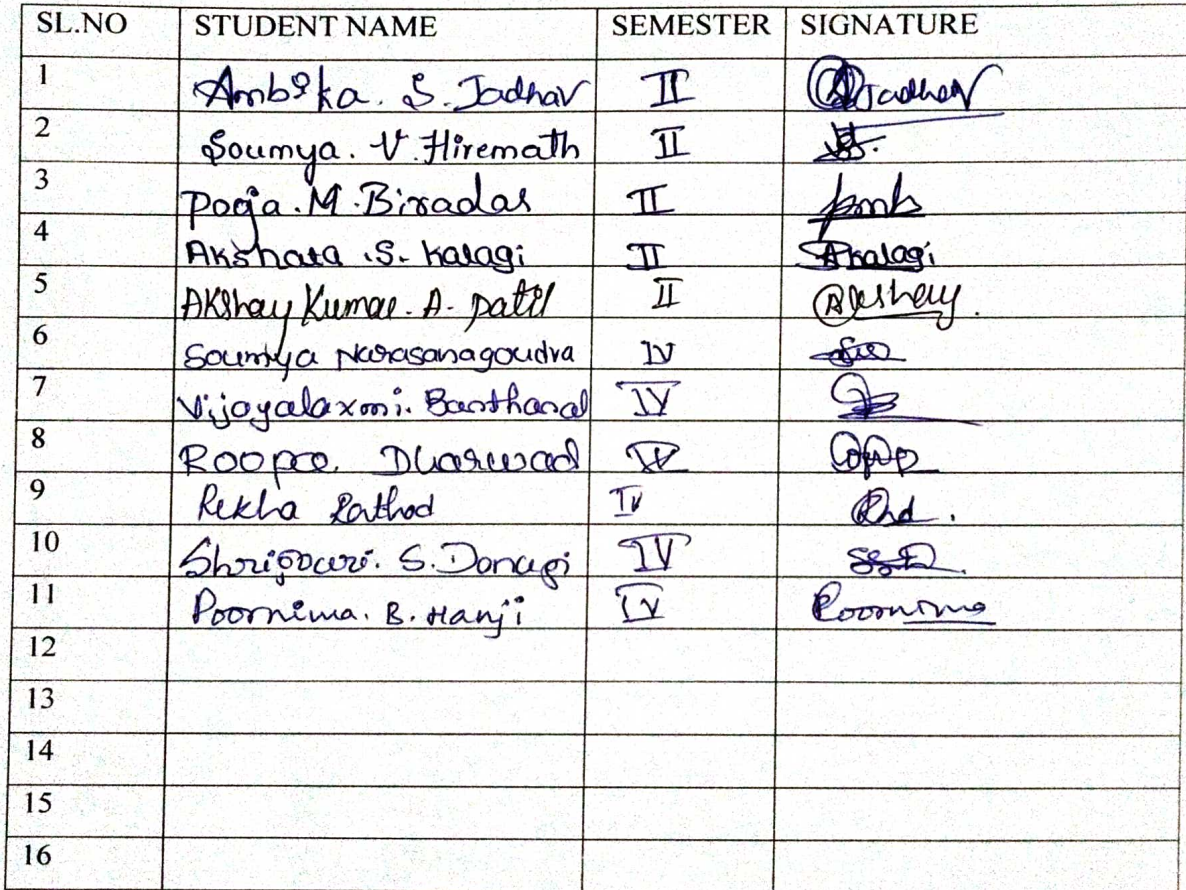 SL.NO STUDENT NAME SEMESTER SIGNATURE
1 Ambika. S. Jadhav II Jadhav
2 Soumya. V. Hiremath II
3 Pooja. M. Biradar II pmb
4 Akshata .S. Kalagi II Akalagi
5 Akshay Kumar. A. patil II Akshay.
6 Soumya Narasanagoudra IV
7 Vijayalaxmi. Banthanal IV
8 Roopa. Dharwad IV
9 Rekha Rathod IV
10 S. Donagi IV
11 Poornima. B. Hanji IV Poornima
12
13
14
15
16